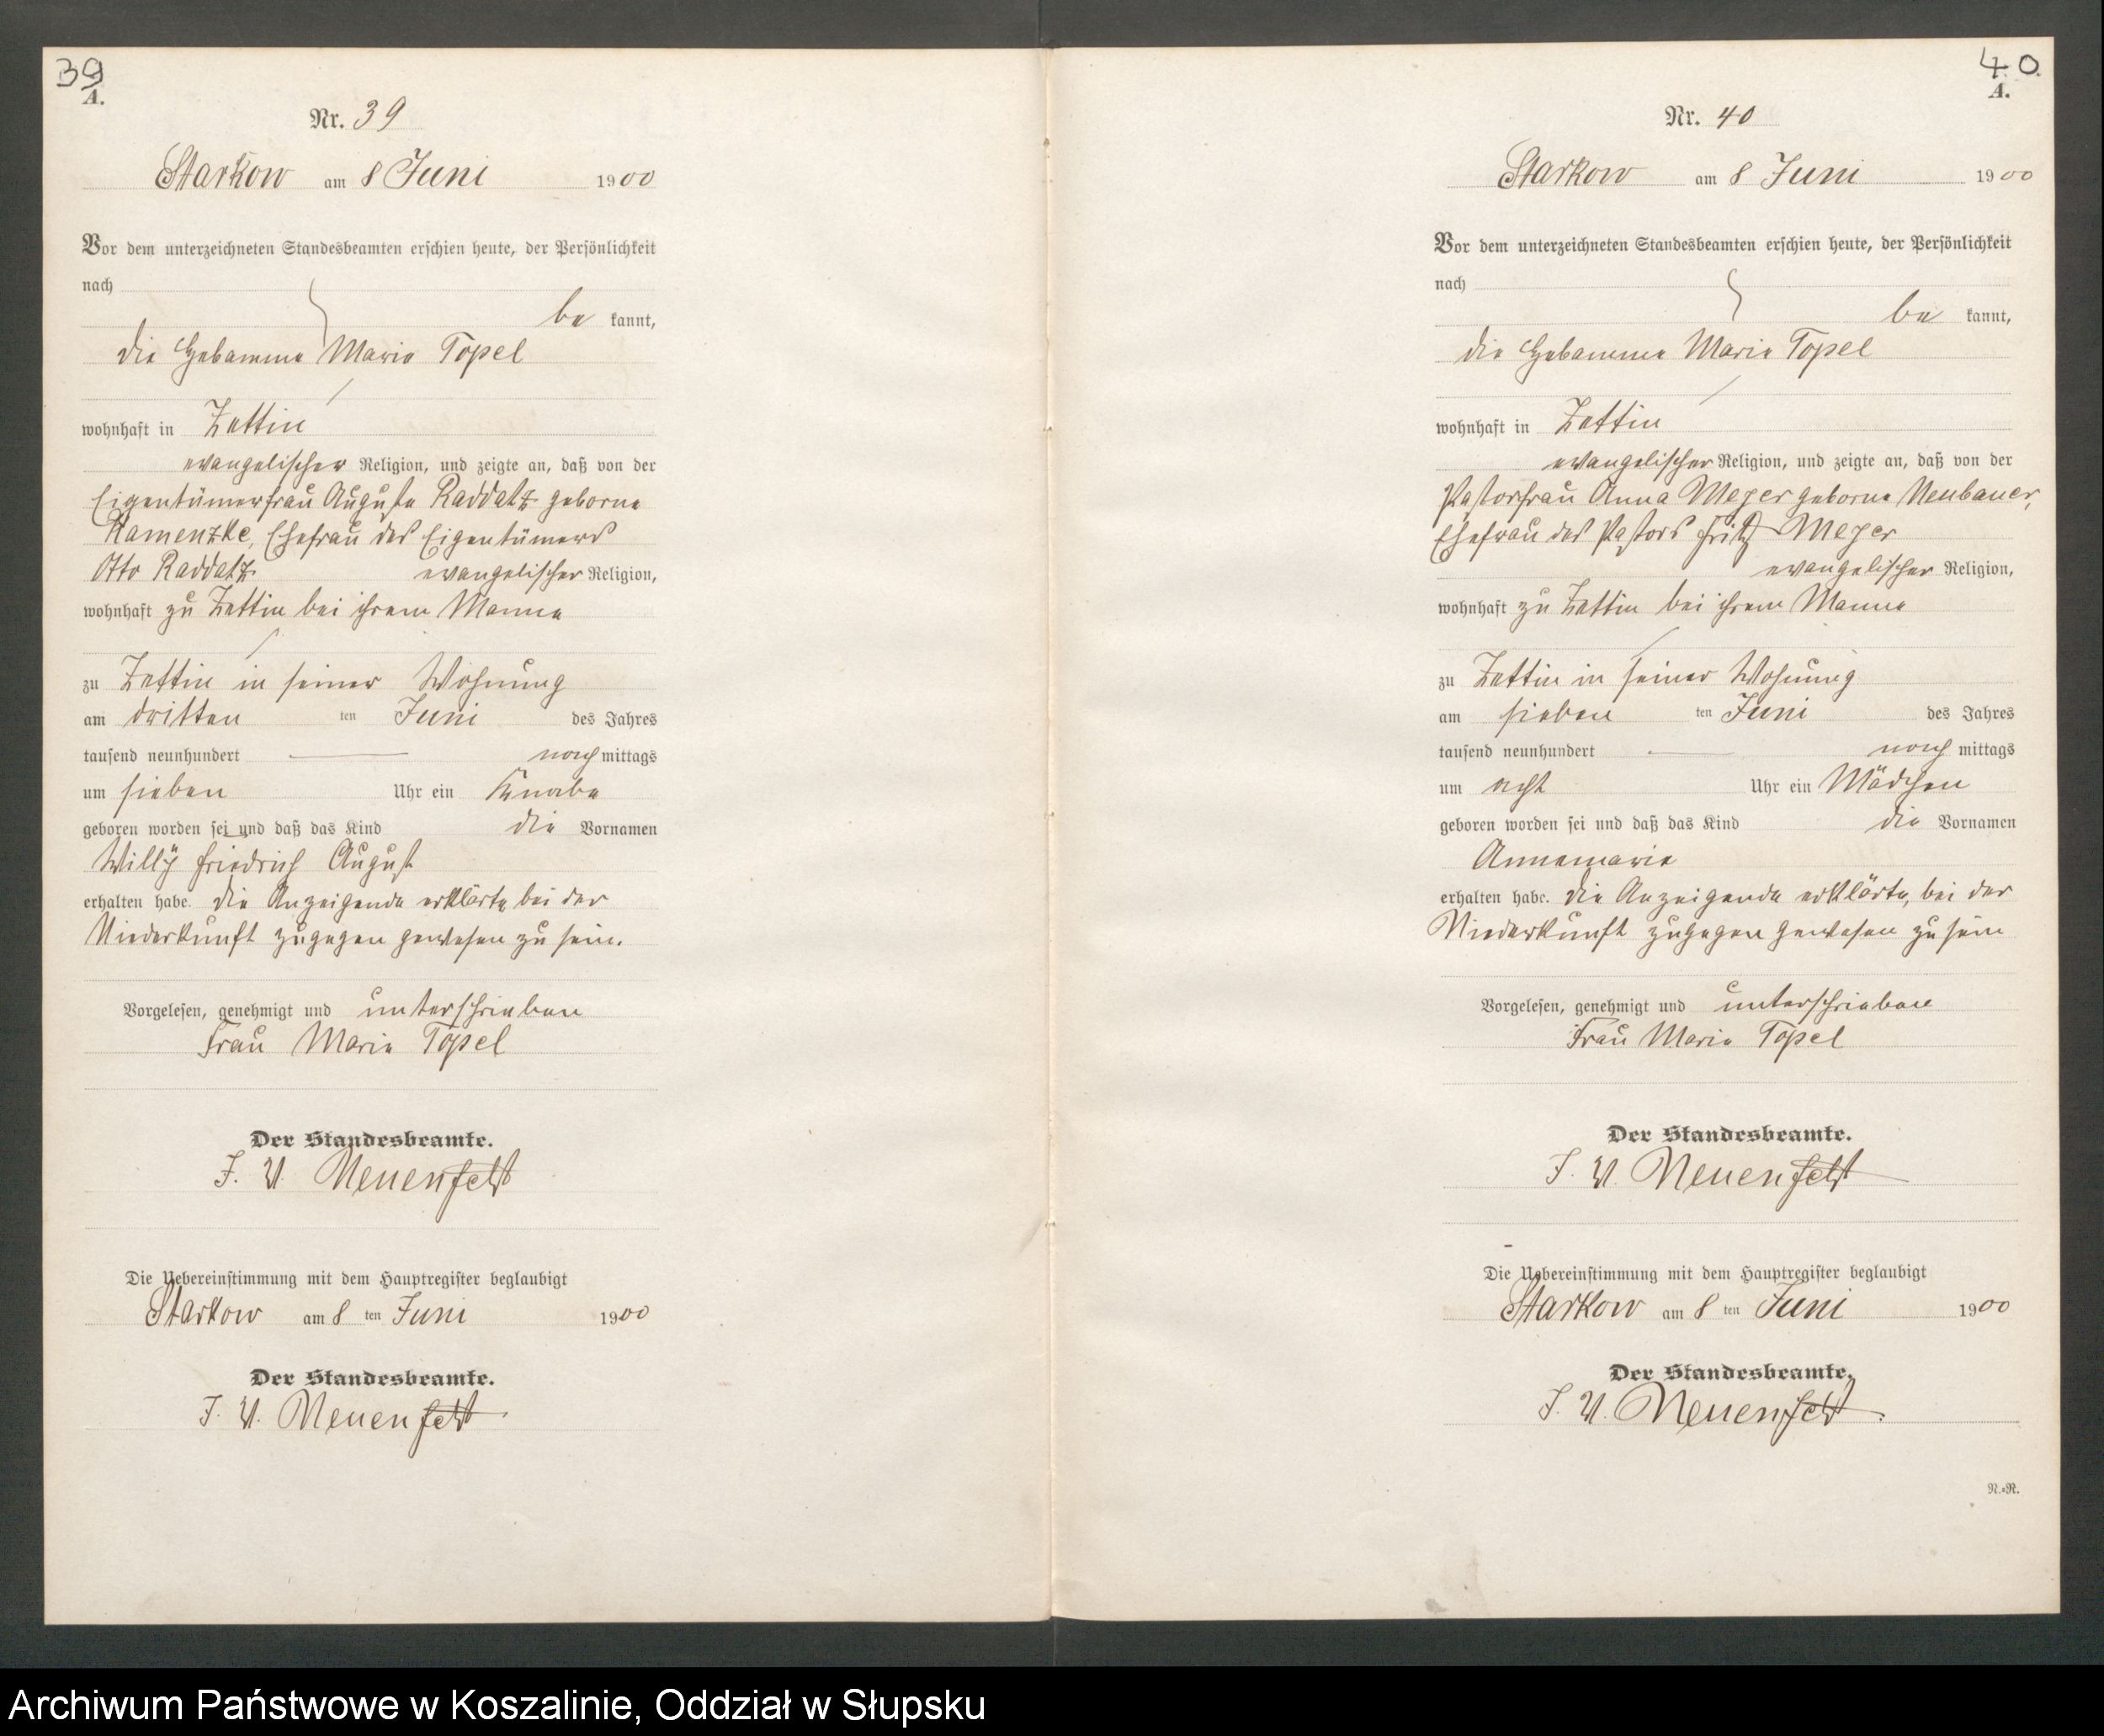 39
A.
Nr. 39
Starkow am 8 Juni 1900
Vor dem unterzeichneten Standesbeamten erschien heute, der Persönlichkeit
nach
be kannt,
die Hebamme Marie Topel
wohnhaft in Zettin
evangelischer Religion, und zeigte an, daß von der
Eigentümerfrau Auguste Raddatz geborne
Kamenzke, Ehefrau des Eigentümers
Otto Raddatz evangelischer Religion,
wohnhaft zu Zettin bei ihrem Manne
zu Zettin in seiner Wohnung
am dritten ten Juni des Jahres
tausend neunhundert nach mittags
um sieben Uhr ein Knabe
geboren worden sei und daß das Kind die Vornamen
Willÿ Friedrich August
erhalten habe. Die Anzeigende erklärte, bei der
Niederkunft zugegen gewesen zu sein.
Vorgelesen, genehmigt und unterschrieben
Frau Marie Topel
Der Standesbeamte.
J. V. Neuenfeldt
Die Uebereinstimmung mit dem Hauptregister beglaubigt
Starkow am 8 ten Juni 1900
Der Standesbeamte.
J. V. Neuenfeldt
40.
A.
Nr. 40
Starkow am 8 Juni 1900
Vor dem unterzeichneten Standesbeamten erschien heute, der Persönlichkeit
nach
be kannt,
die Hebamme Marie Topel
wohnhaft in Zettin
evangelischer Religion, und zeigte an, daß von der
Pastorfrau Anna Meyer geborne Neubauer,
Ehefrau des Pastors Fritz Meyer
evangelischer Religion,
wohnhaft zu Zettin bei ihrem Manne
zu Zettin in seiner Wohnung
am sieben ten Juni des Jahres
tausend neunhundert nach mittags
um acht Uhr ein Mädchen
geboren worden sei und daß das Kind die Vornamen
Annemarie
erhalten habe. Die Anzeigende erklärte, bei der
Niederkunft zugegen gewesen zu sein
Vorgelesen, genehmigt und unterschrieben
Frau Marie Topel
Der Standesbeamte.
J. V. Neuenfeldt
Die Uebereinstimmung mit dem Hauptregister beglaubigt
Starkow am 8 ten Juni 1900
Der Standesbeamte.
J. V. Neuenfeldt
N.=R.
Archiwum Państwowe w Koszalinie, Oddział w Słupsku